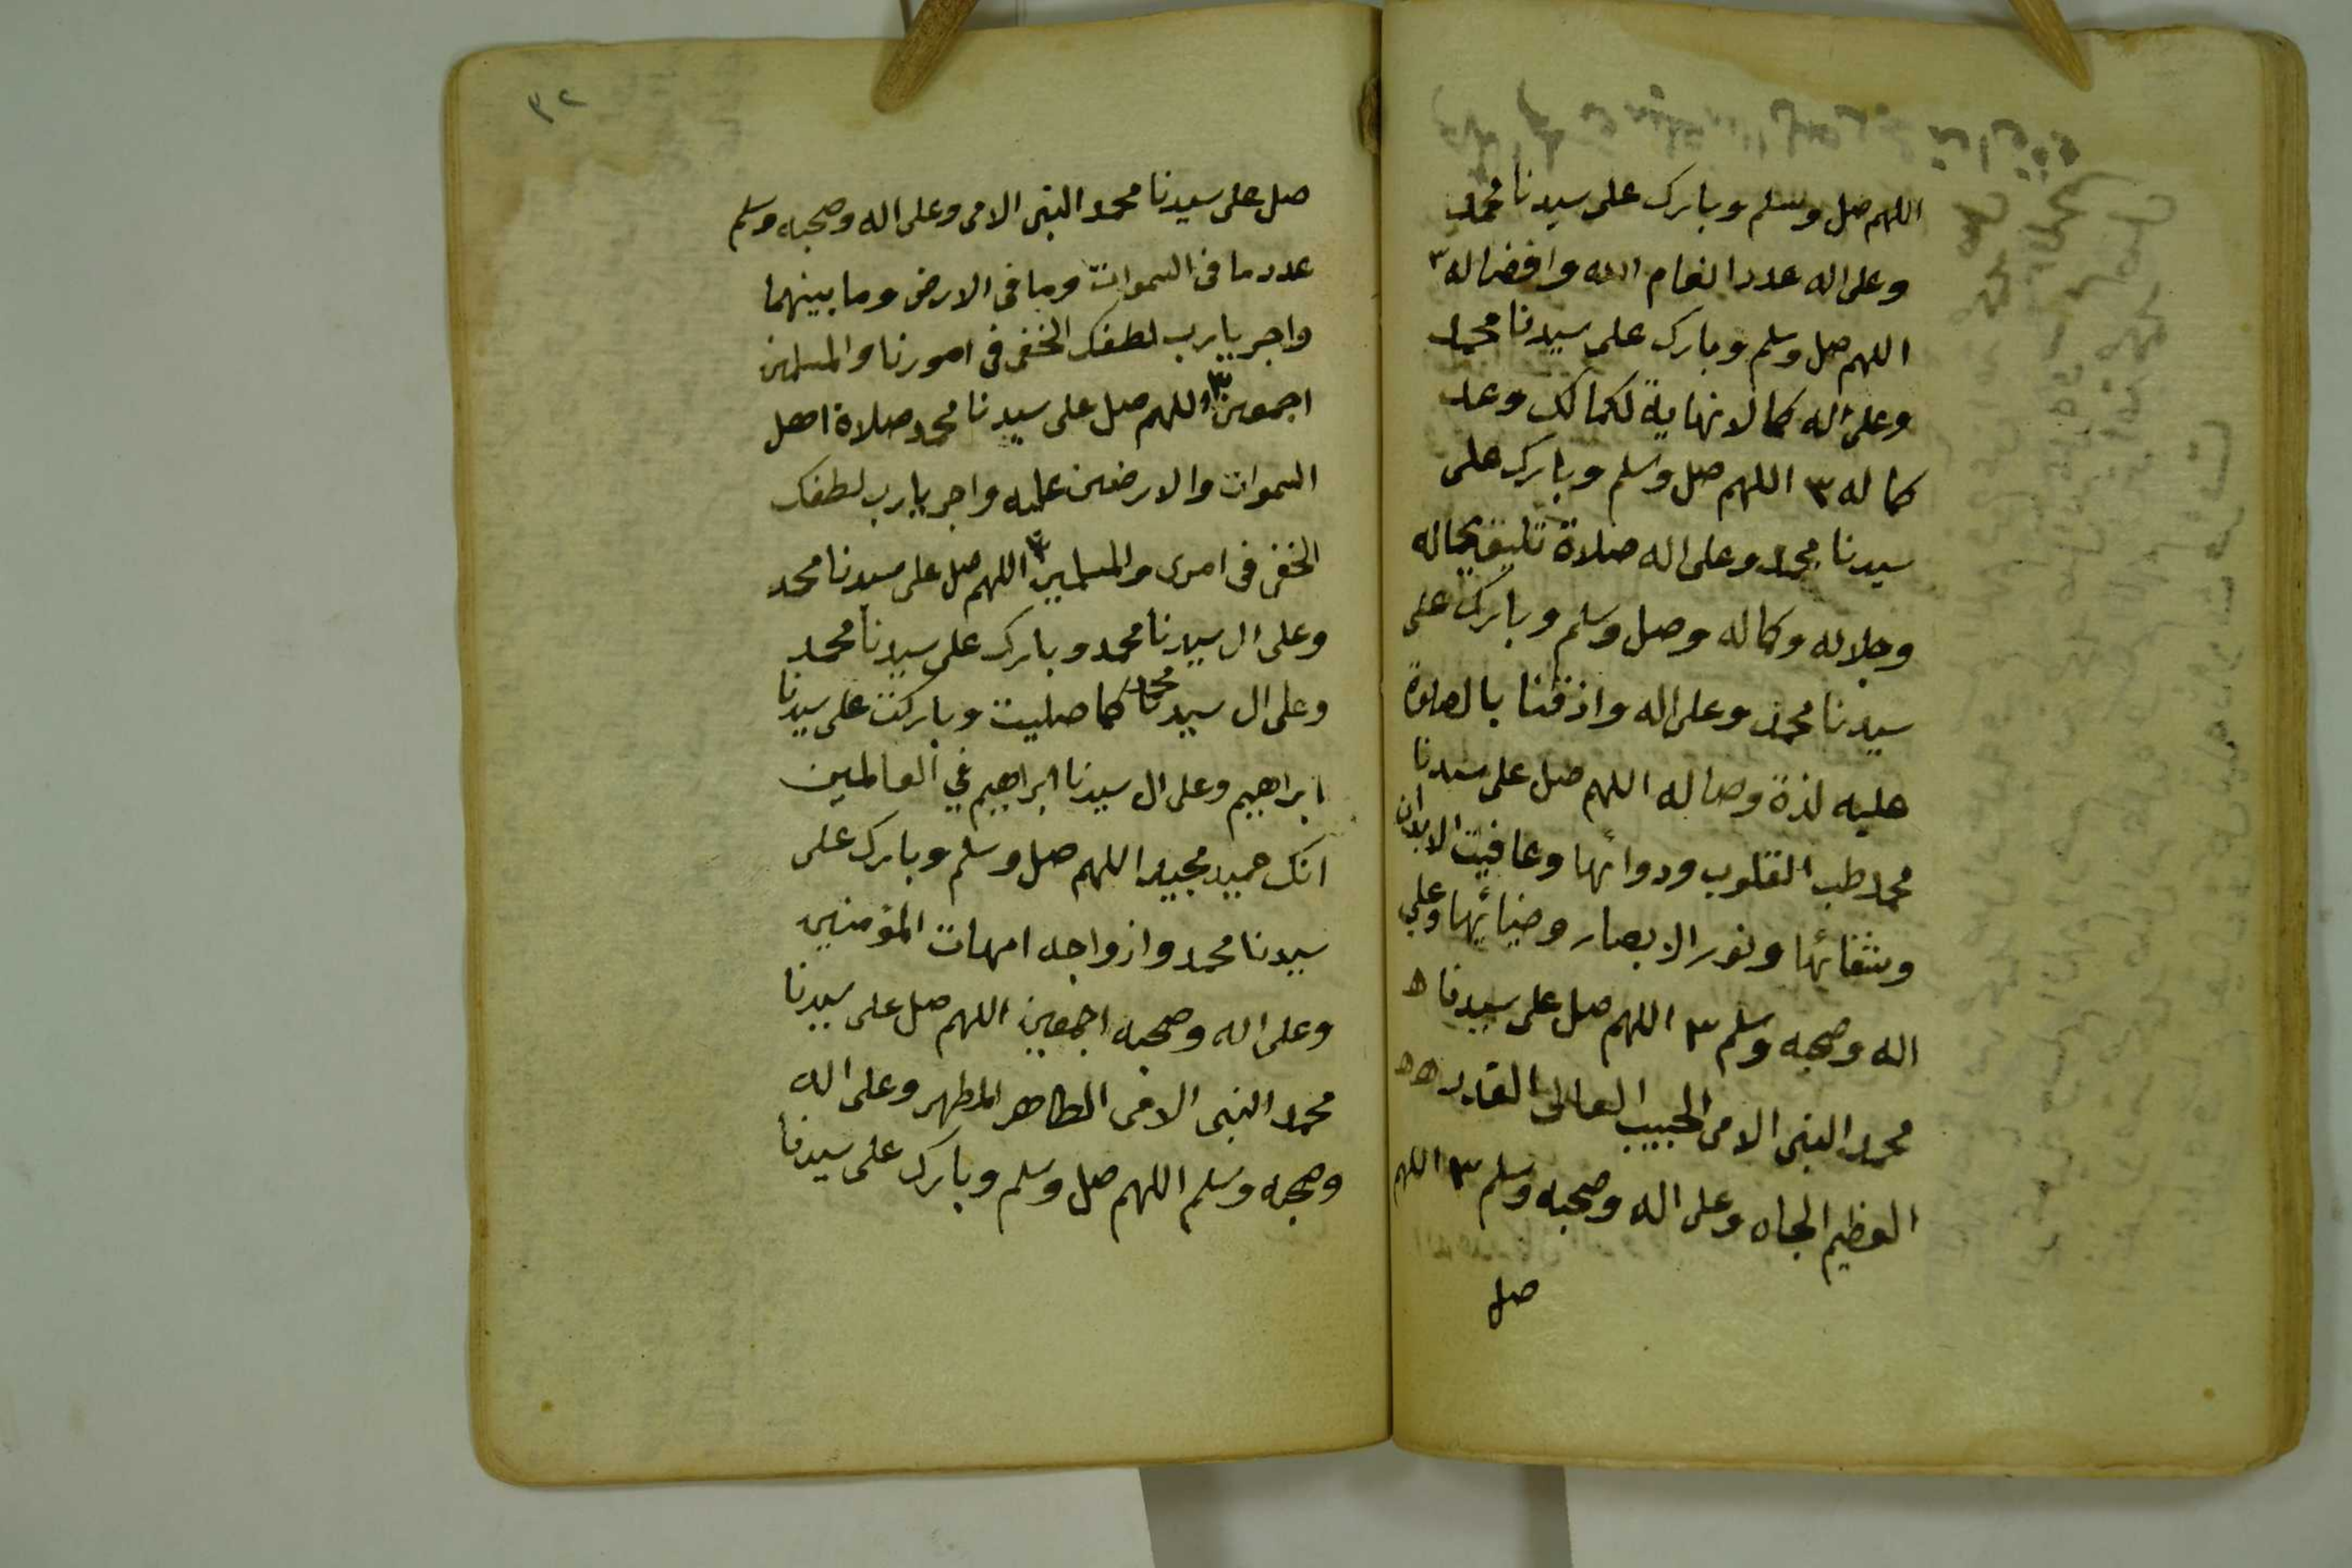 اللهم صل وسلم وبارك على سيدنا محمد
وعلى اله عدد انعام الله وافضاله ٣
اللهم صل وسلم وبارك على سيدنا محمد
وعلى اله كما لا نهاية لكمالك وعد
كماله ٣ اللهم صل وسلم وبارك على
سيدنا محمد وعلى اله صلاة تليق بجماله
وجلاله وكماله وصل وسلم وبارك على
سيدنا محمد وعلى اله واذقنا بالصلوة
عليه لذة وصاله اللهم صل على سيدنا
محمد طب القلوب ودوائها وعافيت الابدان
وشفائها ونور الابصار وضيائها وعلي
اله وصحبه وسلم ٣ اللهم صل على سيدنا ه
محمد النبى الامى الحبيب العالى القدر ه ه
العظيم الجاه وعلى اله وصحبه وسلم ٣ اللهم
صل
٣٢
صل على سيدنا محمد النبى الامى وعلى اله وصحبه وسلم
عدد ما فى السموات وما فى الارض وما بينهما
واجر يا رب لطفك الخفى فى امورنا والمسلمين
اجمعين ٣ اللهم صل على سيدنا محمد صلاة اهل
السموات والارضين عليه واجر يا رب لطفك
الخفى فى امرى والمسلمين ٣ اللهم صل على سيدنا محمد
وعلى ال سيدنا محمد وبارك على سيدنا محمد
وعلى ال سيدنا محمد كما صليت وباركت على سيدنا
ابراهيم وعلى ال سيدنا ابراهيم في العالمين
انك حميد مجيد اللهم صل وسلم وبارك على
سيدنا محمد وازواجه امهات المؤمنين
وعلى اله وصحبه اجمعين اللهم صل على سيدنا
محمد النبى الامى الطاهر المطهر وعلى اله
وصحبه وسلم اللهم صل وسلم وبارك على سيدنا